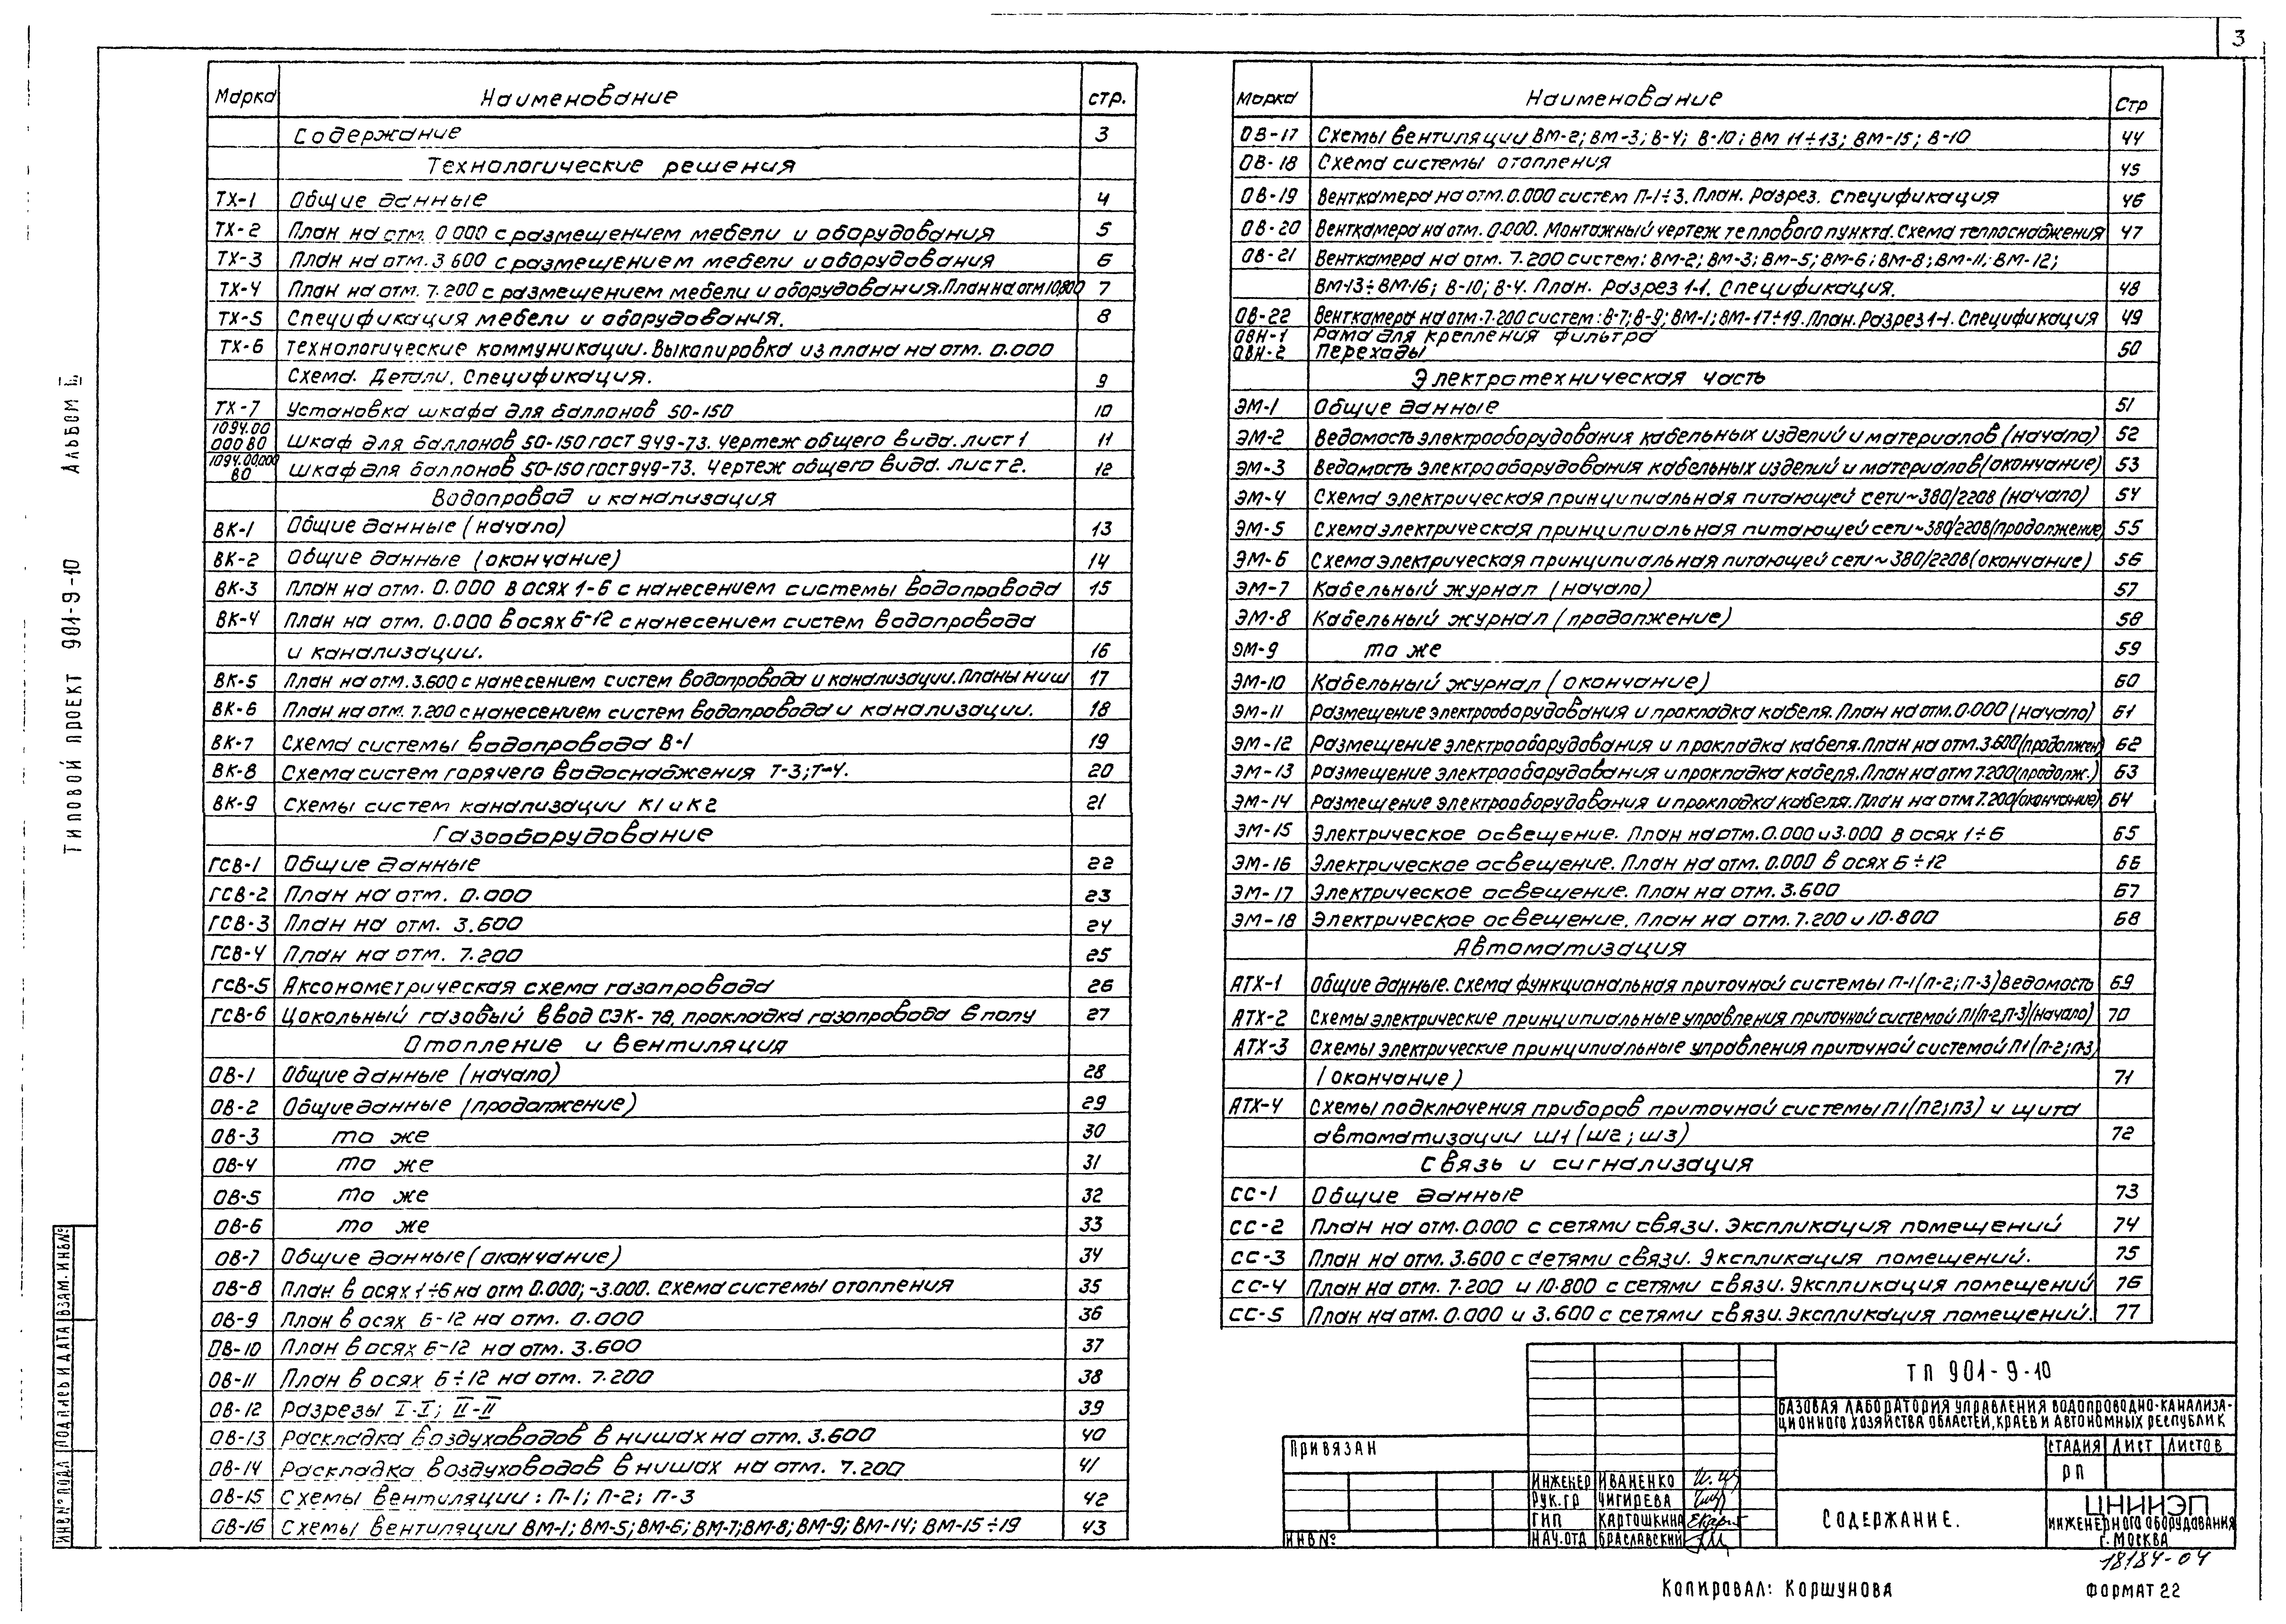 3
Марка Наименование стр.
Содержание 3
Технологические решения
ТХ-1 Общие данные 4
ТХ-2 План на отм. 0.000 с размещением мебели и оборудования 5
ТХ-3 План на отм. 3.600 с размещением мебели и оборудования 6
ТХ-4 План на отм. 7.200 с размещением мебели и оборудования. План на отм 10.800 7
ТХ-5 Спецификация мебели и оборудования. 8
ТХ-6 Технологические коммуникации. Выкопировка из плана на отм. 0.000
Схема. Детали. Спецификация. 9
ТХ-7 Установка шкафа для баллонов 50-150 10
1094.00 000 ВО Шкаф для баллонов 50-150 гост 949-73. Чертеж общего вида. лист 1 11
1094.00.000 ВО Шкаф для баллонов 50-150 гост 949-73. Чертеж общего вида. лист 2. 12
Водопровод и канализация
ВК-1 Общие данные (начало) 13
ВК-2 Общие данные (окончание) 14
ВК-3 План на отм. 0.000 в осях 1-6 с нанесением системы водопровода 15
ВК-4 План на отм. 0.000 в осях 6-12 с нанесением систем водопровода
и канализации. 16
ВК-5 План на отм. 3.600 с нанесением систем водопровода и канализации. Планы ниш 17
ВК-6 План на отм. 7.200 с нанесением систем водопровода и канализации. 18
ВК-7 Схема системы водопровода В-1 19
ВК-8 Схема систем горячего водоснабжения Т-3; Т-4. 20
ВК-9 Схемы систем канализации К1 и К2 21
Газооборудование
ГСВ-1 Общие данные 22
ГСВ-2 План на отм. 0.000 23
ГСВ-3 План на отм. 3.600 24
ГСВ-4 План на отм. 7.200 25
ГСВ-5 Аксонометрическая схема газопровода 26
ГСВ-6 Цокольный газовый ввод СЭК-78, прокладка газопровода в полу 27
Отопление и вентиляция
ОВ-1 Общие данные (начало) 28
ОВ-2 Общие данные (продолжение) 29
ОВ-3 то же 30
ОВ-4 то же 31
ОВ-5 то же 32
ОВ-6 то же 33
ОВ-7 Общие данные (окончание) 34
ОВ-8 План в осях 1÷6 на отм 0.000; -3.000. Схема системы отопления 35
ОВ-9 План в осях 6-12 на отм. 0.000 36
ОВ-10 План в осях 6-12 на отм. 3.600 37
ОВ-11 План в осях 6÷12 на отм. 7.200 38
ОВ-12 Разрезы I-I; II-II 39
ОВ-13 Раскладка воздуховодов в нишах на отм. 3.600 40
ОВ-14 Раскладка воздуховодов в нишах на отм. 7.200 41
ОВ-15 Схемы вентиляции: П-1; П-2; П-3 42
ОВ-16 Схемы вентиляции ВМ-1; ВМ-5; ВМ-6; ВМ-7; ВМ-8; ВМ-9; ВМ-14; ВМ-15÷19 43
Марка Наименование Стр
ОВ-17 Схемы вентиляции ВМ-2; ВМ-3; В-4; В-10; ВМ 11÷13; ВМ-15; В-10 44
ОВ-18 Схема системы отопления 45
ОВ-19 Венткамера на отм. 0.000 систем П-1÷3. План. Разрез. Спецификация 46
ОВ-20 Венткамера на отм. 0.000. Монтажный чертеж теплового пункта. Схема теплоснабжения 47
ОВ-21 Венткамера на отм. 7.200 систем: ВМ-2; ВМ-3; ВМ-5; ВМ-6; ВМ-8; ВМ-11; ВМ-12;
ВМ-13÷ВМ-16; В-10; В-4. План. Разрез 1-1. Спецификация. 48
ОВ-22 Венткамера на отм. 7.200 систем: В-7; В-9; ВМ-1; ВМ-17÷19. План. Разрез 1-1. Спецификация 49
ОВН-1 Рама для крепления фильтра
ОВН-2 Переходы 50
Электротехническая часть
ЭМ-1 Общие данные 51
ЭМ-2 Ведомость электрооборудования кабельных изделий и материалов (начало) 52
ЭМ-3 Ведомость электрооборудования кабельных изделий и материалов (окончание) 53
ЭМ-4 Схема электрическая принципиальная питающей сети ~380/220В (начало) 54
ЭМ-5 Схема электрическая принципиальная питающей сети ~380/220В (продолжение) 55
ЭМ-6 Схема электрическая принципиальная питающей сети ~380/220В (окончание) 56
ЭМ-7 Кабельный журнал (начало) 57
ЭМ-8 Кабельный журнал (продолжение) 58
ЭМ-9 то же 59
ЭМ-10 Кабельный журнал (окончание) 60
ЭМ-11 Размещение электрооборудования и прокладка кабеля. План на отм. 0.000 (начало) 61
ЭМ-12 Размещение электрооборудования и прокладка кабеля. План на отм. 3.600 (продолжен) 62
ЭМ-13 Размещение электрооборудования и прокладка кабеля. План на отм 7.200 (продолж.) 63
ЭМ-14 Размещение электрооборудования и прокладка кабеля. План на отм 7.200 (окончание) 64
ЭМ-15 Электрическое освещение. План на отм. 0.000 и 3.000 в осях 1÷6 65
ЭМ-16 Электрическое освещение. План на отм. 0.000 в осях 6÷12 66
ЭМ-17 Электрическое освещение. План на отм. 3.600 67
ЭМ-18 Электрическое освещение. План на отм. 7.200 и 10.800 68
Автоматизация
АТХ-1 Общие данные. Схема функциональная приточной системы П-1 (П-2; П-3) Ведомость 69
АТХ-2 Схемы электрические принципиальные управления приточной системой П1 (П-2, П-3) (начало) 70
АТХ-3 Схемы электрические принципиальные управления приточной системой П1 (П-2; П3)
(окончание) 71
АТХ-4 Схемы подключения приборов приточной системы П1 (П2; П3) и щита
автоматизации Ш1 (Ш2; Ш3) 72
Связь и сигнализация
СС-1 Общие данные 73
СС-2 План на отм. 0.000 с сетями связи. Экспликация помещений 74
СС-3 План на отм. 3.600 с сетями связи. Экспликация помещений. 75
СС-4 План на отм. 7.200 и 10.800 с сетями связи. Экспликация помещений 76
СС-5 План на отм. 0.000 и 3.600 с сетями связи. Экспликация помещений. 77
ТП 901-9-10
БАЗОВАЯ ЛАБОРАТОРИЯ УПРАВЛЕНИЯ ВОДОПРОВОДНО-КАНАЛИЗА-
ЦИОННОГО ХОЗЯЙСТВА ОБЛАСТЕЙ, КРАЕВ И АВТОНОМНЫХ РЕСПУБЛИК
СТАДИЯ ЛИСТ ЛИСТОВ
РП
ПРИВЯЗАН
ИНВ №
ИНЖЕНЕР ИВАНЕНКО
РУК. ГР ЧИГИРЕВА
ГИП КАРТОШКИНА
НАЧ. ОТД БРАСЛАВСКИЙ
СОДЕРЖАНИЕ.
ЦНИИЭП
ИНЖЕНЕРНОГО ОБОРУДОВАНИЯ
Г. МОСКВА
18184-04
КОПИРОВАЛ: КОРШУНОВА
ФОРМАТ 22
ТИПОВОЙ ПРОЕКТ 901-9-10 АЛЬБОМ
ИНВ № ПОДЛ ПОДПИСЬ И ДАТА ВЗАМ. ИНВ №